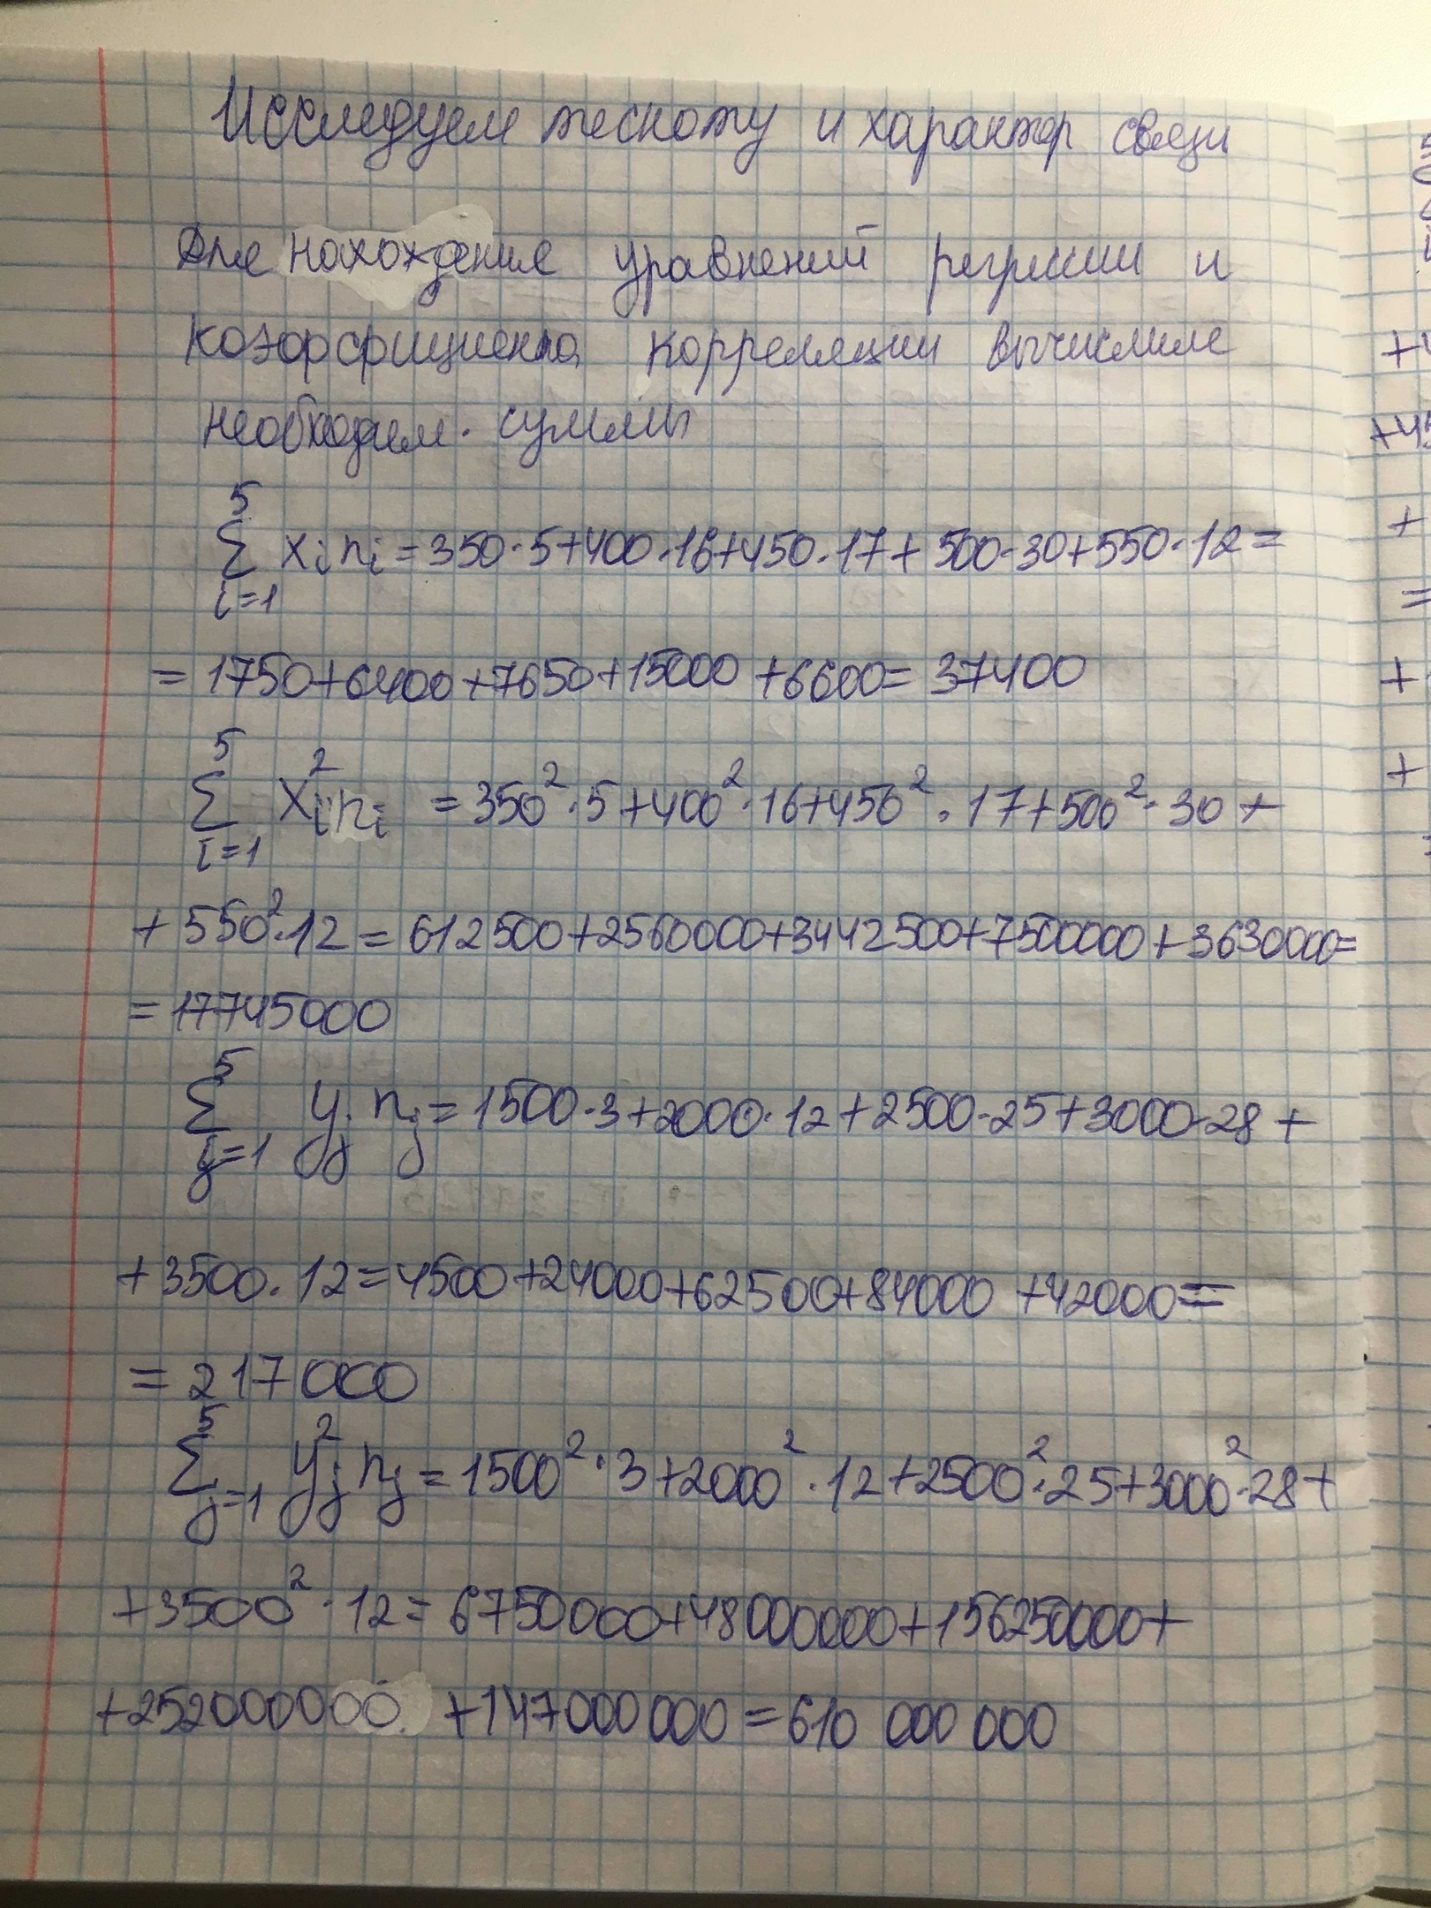 Исследуем тесноту и характер связи
Для нахождения уравнений регрессии и
коэффициента корреляции вычислим
необходим. суммы
5
∑ xᵢnᵢ = 350·5+400·16+450·17+500·30+550·12=
i=1
= 1750+6400+7650+15000+6600=37400
5
∑ xᵢ²nᵢ = 350²·5+400²·16+450²·17+500²·30+
i=1
+550²·12=612500+2560000+3442500+7500000+3630000=
=17745000
5
∑ yⱼnⱼ=1500·3+2000·12+2500·25+3000·28+
j=1
+3500·12=4500+24000+62500+84000+42000=
=217000
5
∑ yⱼ²nⱼ=1500²·3+2000²·12+2500²·25+3000²·28+
j=1
+3500²·12=6750000+48000000+156250000+
+252000000+147000000=610 000 000